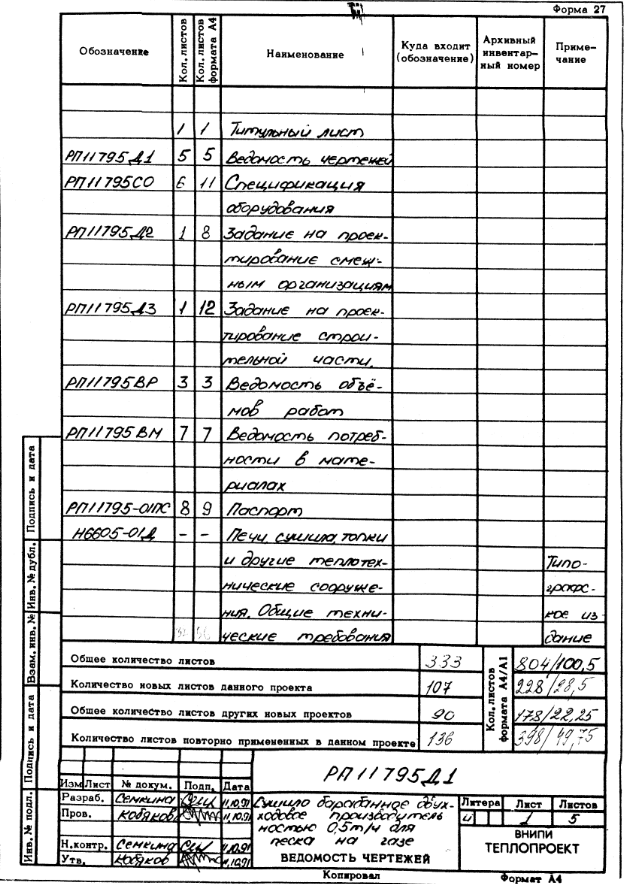 Форма 27
Обозначение Кол. листов Кол. листов формата А4 Наименование Куда входит (обозначение) Архивный инвентарный номер Примечание
1 1 Титульный лист
РП11795Д1 5 5 Ведомость чертежей
РП11795СО 6 11 Спецификация
оборудования
РП11795Д2 1 8 Задание на проек-
тирование смеж-
ным организациям
РП11795Д3 1 12 Задание на проек-
тирование строи-
тельной части.
РП11795ВР 3 3 Ведомость объё-
мов работ
РП11795ВМ 7 7 Ведомость потреб-
ности в мате-
риалах
РП11795-01ПС 8 9 Паспорт
Н6605-01Д - - Печи сушила топки
и другие теплотех- Типо-
нические сооруже- графс-
ния. Общие техни- кое из-
ческие требования дание
Общее количество листов 333 Кол. листов формата А4/А1 804/100,5
Количество новых листов данного проекта 107 228/28,5
Общее количество листов других новых проектов 90 178/22,25
Количество листов повторно примененных в данном проекте 136 398/49,75
РП11795Д1
Изм Лист № докум. Подп. Дата
Разраб. Семкина 11.10.91 Сушило барабанное двух-
Пров. Кобяков 11.10.91 ходовое производитель
ностью 0,5т/ч для
Н.контр. Семкина 11.10.91 песка на газе
Утв. Кобяков 11.10.91 ВЕДОМОСТЬ ЧЕРТЕЖЕЙ
Литера Лист Листов
и 1 5
ВНИПИ
ТЕПЛОПРОЕКТ
Инв. № подл. Подпись и дата Взам. инв. № Инв. № дубл. Подпись и дата
Копировал Формат А4